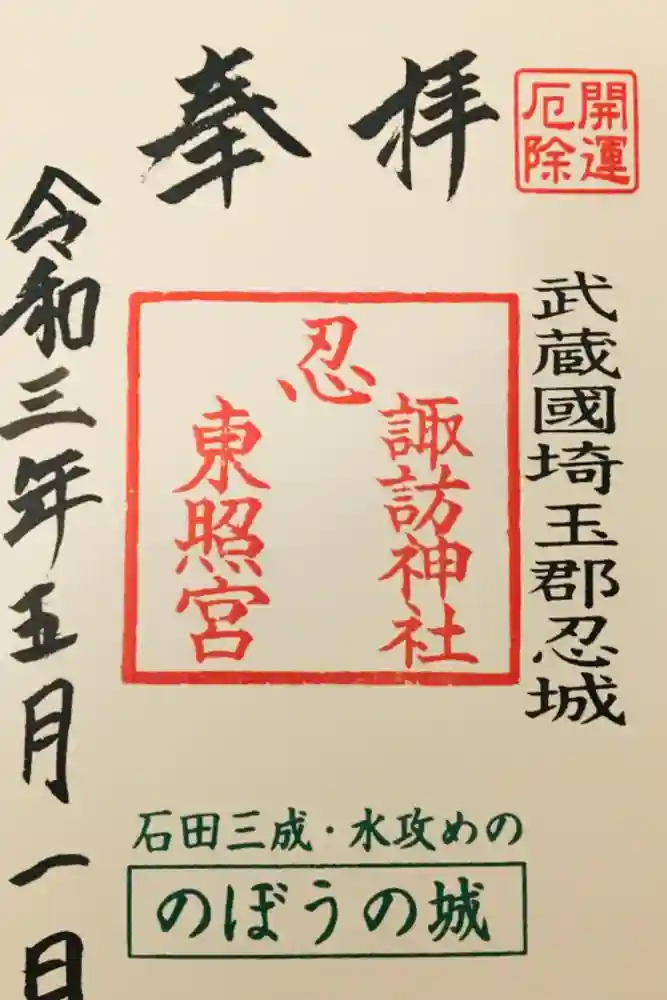 開運
厄除
奉拝
武蔵國埼玉郡忍城
忍
諏訪神社
東照宮
令和三年五月一日
石田三成・水攻めの
のぼうの城